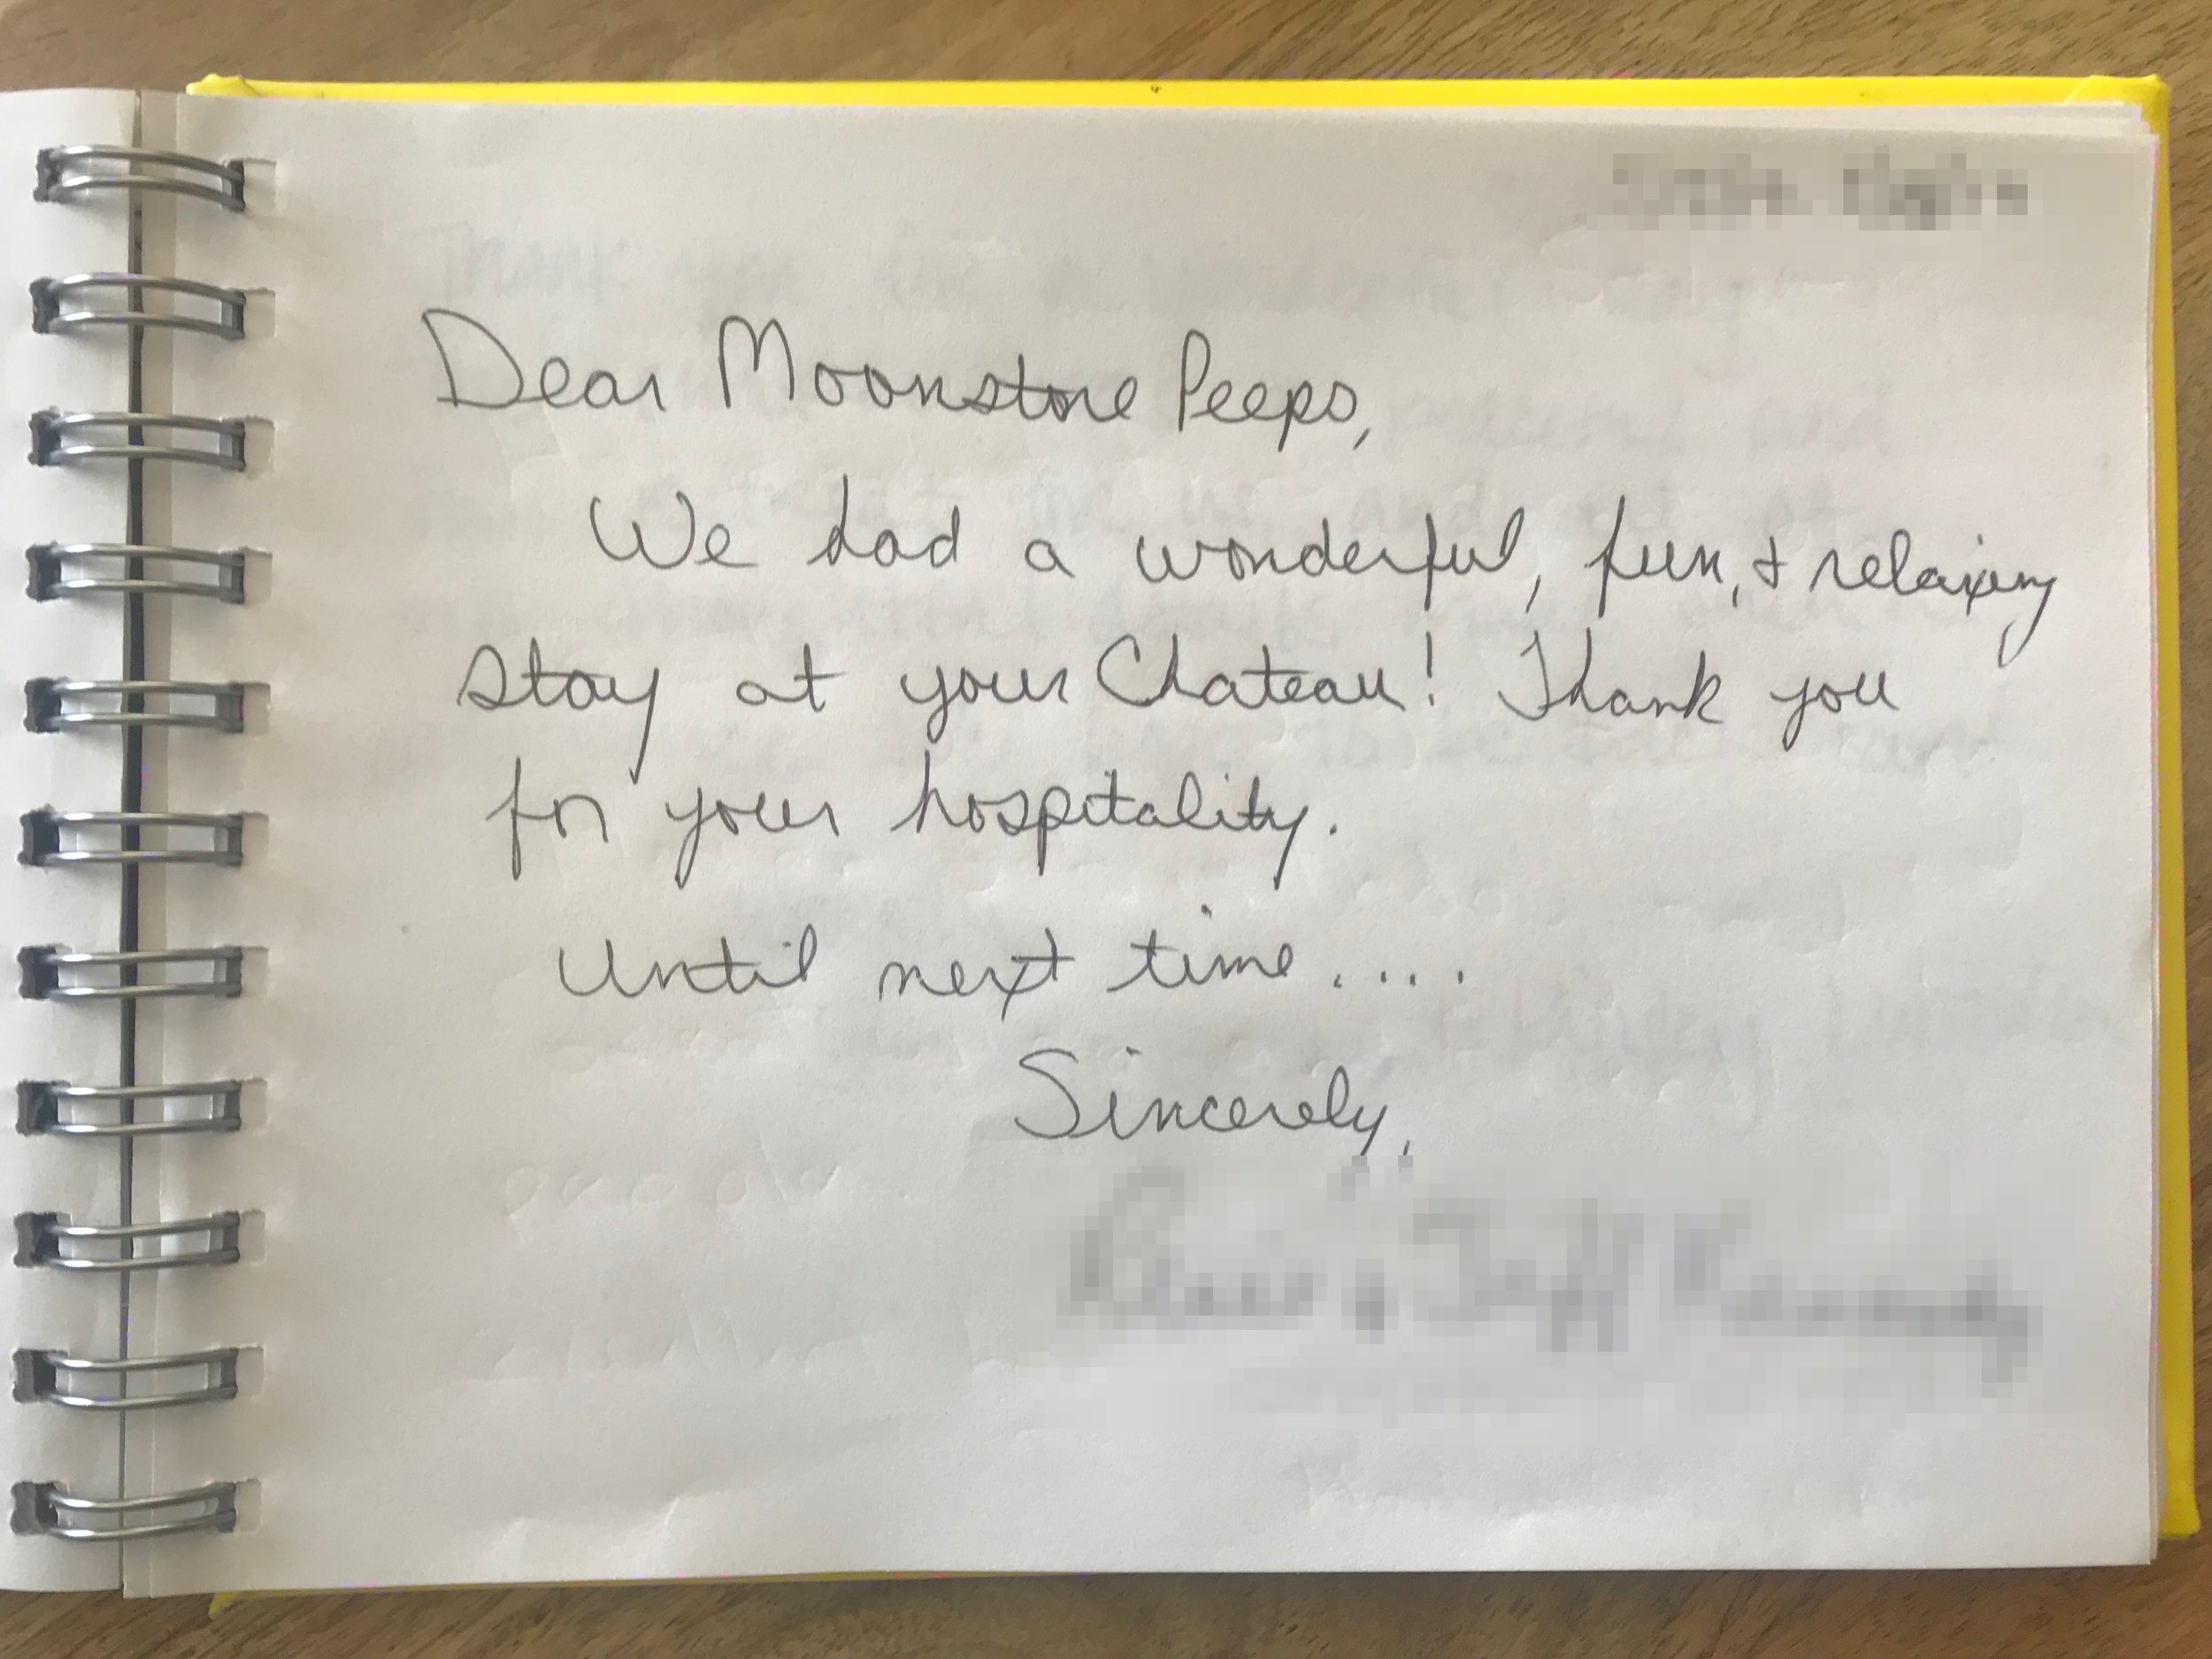 Dear Moonstone Peeps,
We had a wonderful, fun, & relaxing
stay at your Chateau! Thank you
for your hospitality.
Until next time....
Sincerely,